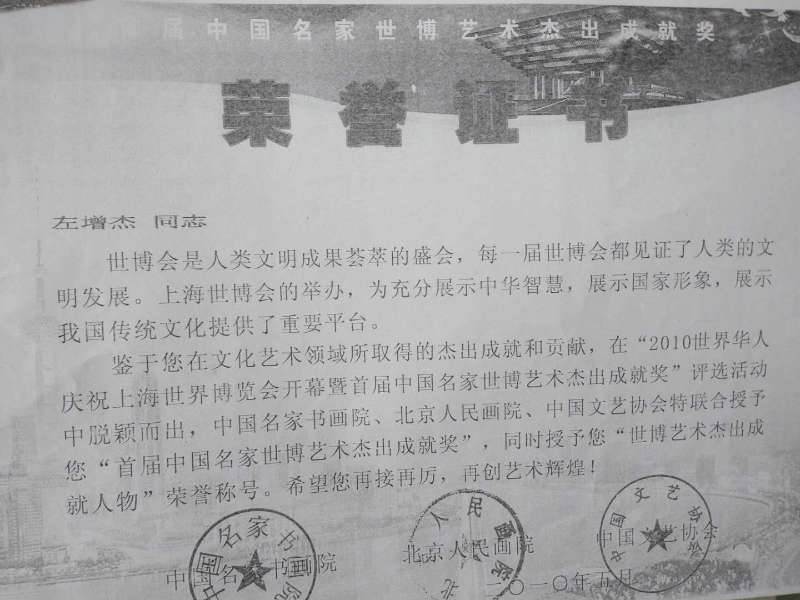 届中国名家世博艺术杰出成就奖
荣誉证书
左增杰 同志
世博会是人类文明成果荟萃的盛会，每一届世博会都见证了人类的文
明发展。上海世博会的举办，为充分展示中华智慧，展示国家形象，展示
我国传统文化提供了重要平台。
鉴于您在文化艺术领域所取得的杰出成就和贡献，在“2010世界华人
庆祝上海世界博览会开幕暨首届中国名家世博艺术杰出成就奖”评选活动
中脱颖而出，中国名家书画院、北京人民画院、中国文艺协会特联合授予
您“首届中国名家世博艺术杰出成就奖”，同时授予您“世博艺术杰出成
就人物”荣誉称号。希望您再接再厉，再创艺术辉煌！
中国名家书画院
北京人民画院
中国文艺协会
中国名家书画院
北京人民画院
中国文艺协会
二〇一〇年五月